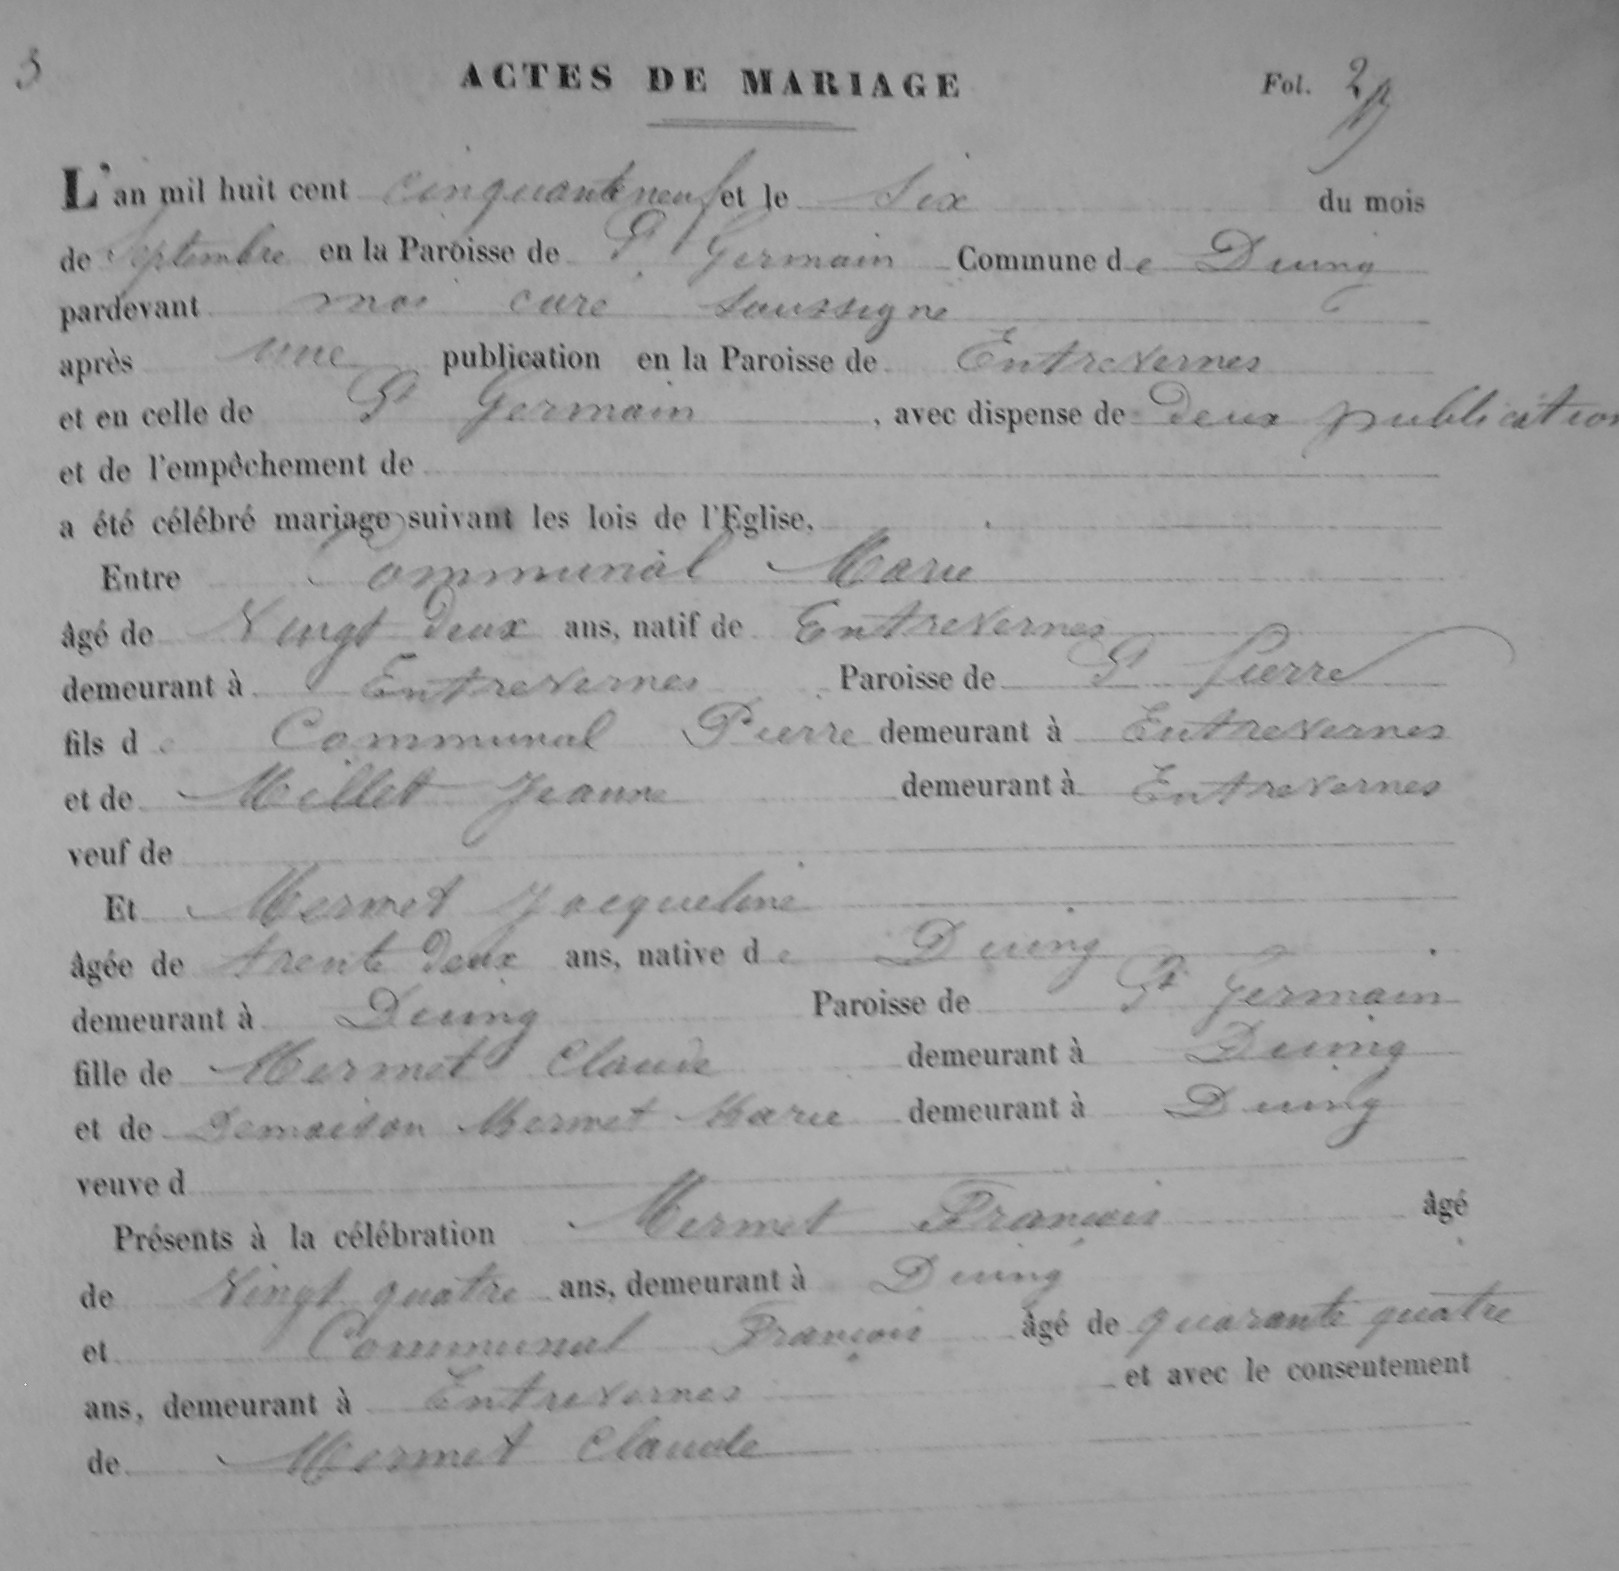 3 ACTES DE MARIAGE Fol. 2
L'an mil huit cent cinquante neuf et le six du mois
de Septembre en la Paroisse de St Germain Commune de Duing
pardevant moi curé soussigné
après une publication en la Paroisse de Entrevernes
et en celle de St Germain, avec dispense de deux publication
et de l'empêchement de
a été célébré mariage suivant les lois de l'Eglise,
Entre Communal Marie
âgé de Vingt deux ans, natif de Entrevernes
demeurant à Entrevernes Paroisse de St Pierre
fils de Communal Pierre demeurant à Entrevernes
et de Millet Jeanne demeurant à Entrevernes
veuf de
Et Mermet Jacqueline
âgée de trente deux ans, native de Duing
demeurant à Duing Paroisse de St Germain
fille de Mermet Claude demeurant à Duing
et de Demaison Mermet Marie demeurant à Duing
veuve d
Présents à la célébration Mermet François âgé
de Vingt quatre ans, demeurant à Duing
et Communal François âgé de quarante quatre
ans, demeurant à Entrevernes et avec le consentement
de Mermet Claude